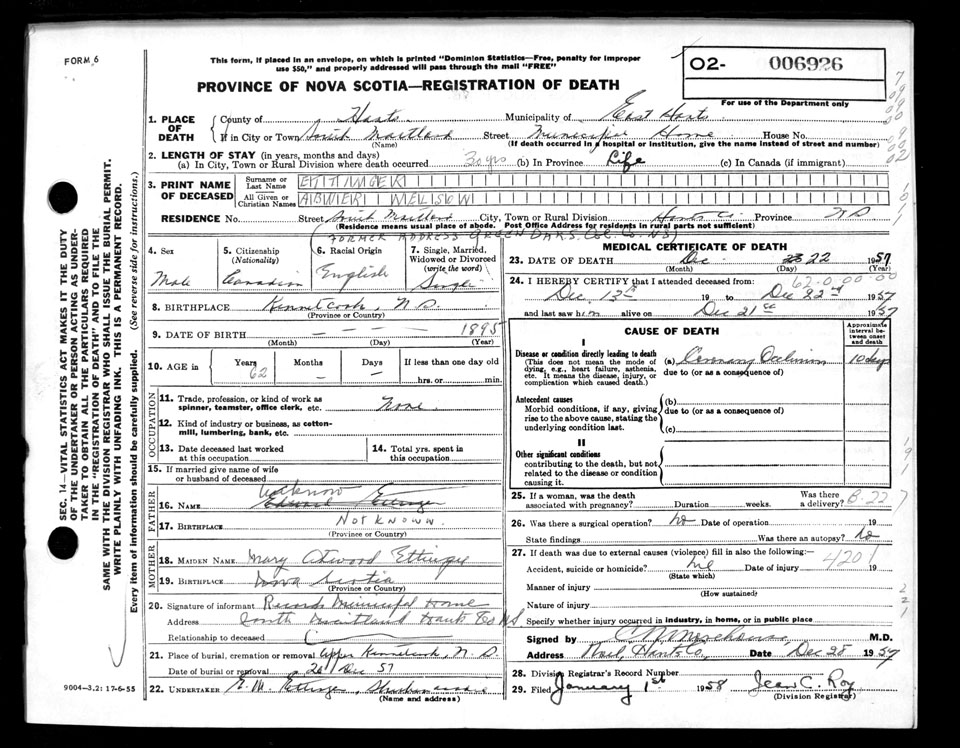 FORM 6
This form, if placed in an envelope, on which is printed "Dominion Statistics—Free, penalty for improper
use $50," and properly addressed will pass through the mail "FREE"
PROVINCE OF NOVA SCOTIA—REGISTRATION OF DEATH
02- 006926
For use of the Department only
1. PLACE OF DEATH
County of Hants Municipality of East Hants
If in City or Town South Maitland Street Municipal Home House No.
(Name) (If death occurred in a hospital or institution, give the name instead of street and number)
2. LENGTH OF STAY (in years, months and days)
(a) In City, Town or Rural Division where death occurred 30 yrs (b) In Province Life (c) In Canada (if immigrant)
3. PRINT NAME OF DECEASED
Surname or Last Name ETTINGER
All Given or Christian Names ABNER
RESIDENCE No. Street South Maitland City, Town or Rural Division Hants Co. Province N S
(Residence means usual place of abode. Post Office Address for residents in rural parts not sufficient)
FORMER ADDRESS GREEN OAKS, COL. CO. N.S.
4. Sex Male
5. Citizenship (Nationality) Canadian
6. Racial Origin English
7. Single, Married, Widowed or Divorced (write the word) Single
8. BIRTHPLACE Kennetcook, N S.
(Province or Country)
9. DATE OF BIRTH — — 1895
(Month) (Day) (Year)
10. AGE in Years 62 Months — Days — If less than one day old hrs. or min.
OCCUPATION
11. Trade, profession, or kind of work as spinner, teamster, office clerk, etc. None
12. Kind of industry or business, as cotton-mill, lumbering, bank, etc.
13. Date deceased last worked at this occupation
14. Total yrs. spent in this occupation
15. If married give name of wife or husband of deceased
FATHER
16. NAME Unknown Edward Ettinger
17. BIRTHPLACE NOT KNOWN.
(Province or Country)
MOTHER
18. MAIDEN NAME Mary Atwood Ettinger
19. BIRTHPLACE Nova Scotia
(Province or Country)
20. Signature of informant Records Municipal Home
Address South Maitland Hants Co N S
Relationship to deceased
21. Place of burial, cremation or removal Upper Kennetcook, N S
Date of burial or removal 26 Dec 57
22. UNDERTAKER E. M. Ettinger, Shubenacadie
(Name and address)
MEDICAL CERTIFICATE OF DEATH
23. DATE OF DEATH Dec. 22 1957
(Month) (Day) (Year)
24. I HEREBY CERTIFY that I attended deceased from:
Dec. 13th 19 to Dec 22nd 1957
and last saw him alive on Dec 21st 1957
62.0.00.00
CAUSE OF DEATH
Approximate interval between onset and death
I
Disease or condition directly leading to death
(This does not mean the mode of dying, e.g., heart failure, asthenia, etc. It means the disease, injury, or complication which caused death.)
(a) Coronary Occlusion 10 days
due to (or as a consequence of)
Antecedent causes
Morbid conditions, if any, giving rise to the above cause, stating the underlying condition last.
(b)
due to (or as a consequence of)
(c)
II
Other significant conditions
contributing to the death, but not related to the disease or condition causing it.
25. If a woman, was the death associated with pregnancy? Duration weeks. Was there a delivery?
26. Was there a surgical operation? No Date of operation 19
State findings Was there an autopsy? No
27. If death was due to external causes (violence) fill in also the following:—
Accident, suicide or homicide? nil Date of injury 19
(State which)
4201
Manner of injury
(How sustained)
Nature of injury
Specify whether injury occurred in industry, in home, or in public place
Signed by M.D.
Address Noel, Hants Co. Date Dec 28 1957
28. Division Registrar's Record Number
29. Filed January 1st 1958 Jean C. Roy
(Division Registrar)
9004—3.2: 17-6-55
SEC. 14—VITAL STATISTICS ACT MAKES IT THE DUTY
OF THE UNDERTAKER OR PERSON ACTING AS UNDER-
TAKER TO OBTAIN ALL THE PARTICULARS REQUIRED
IN THE "REGISTRATION OF DEATH" AND TO FILE THE
SAME WITH THE DIVISION REGISTRAR WHO SHALL ISSUE THE BURIAL PERMIT.
WRITE PLAINLY WITH UNFADING INK. THIS IS A PERMANENT RECORD.
Every item of information should be carefully supplied. (See reverse side for instructions.)